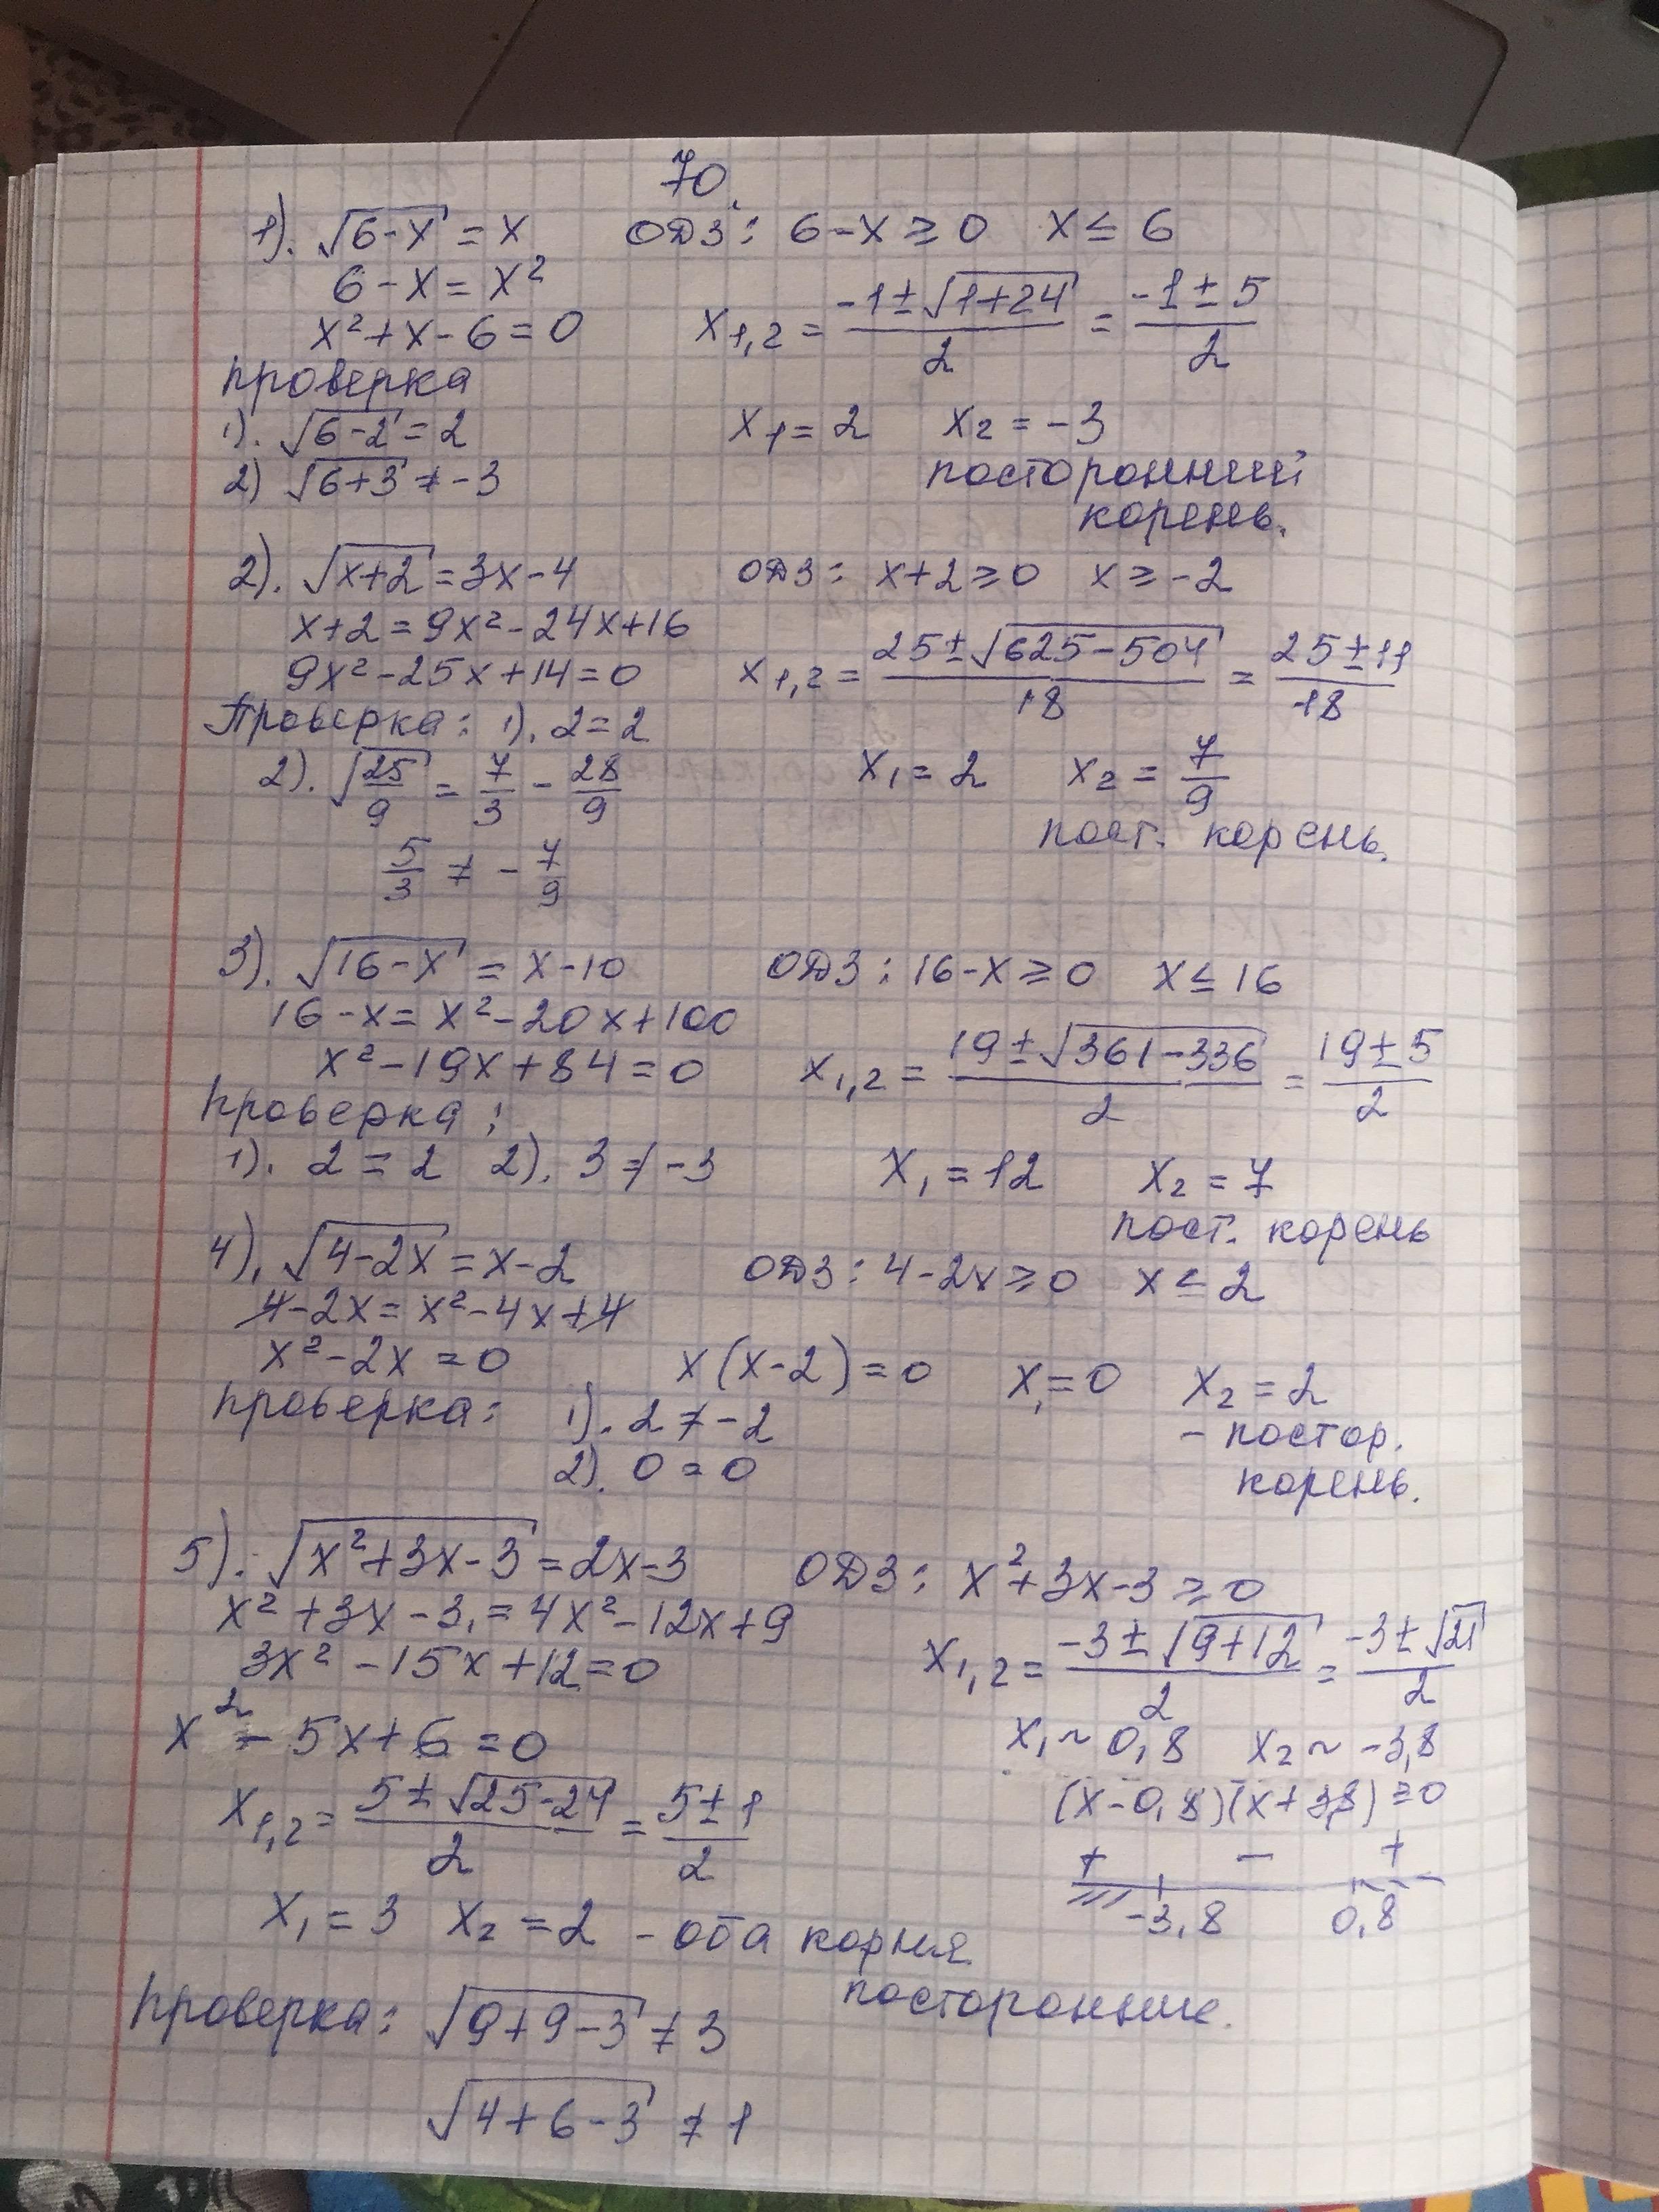 70.
1). √(6-x) = x ОДЗ: 6-x ≥ 0 x ≤ 6
6-x = x²
x²+x-6=0 x₁,₂ = (-1±√(1+24))/2 = (-1±5)/2
проверка
1). √(6-2) = 2 x₁ = 2 x₂ = -3
2) √(6+3) ≠ -3 посторонний
корень.
2). √(x+2) = 3x-4 ОДЗ: x+2 ≥ 0 x ≥ -2
x+2 = 9x²-24x+16
9x²-25x+14=0 x₁,₂ = (25±√(625-504))/18 = (25±11)/18
Проверка: 1). 2=2
2). √(25/9) = 7/3 - 28/9 x₁ = 2 x₂ = 7/9
пост. корень.
5/3 ≠ - 7/9
3). √(16-x) = x-10 ОДЗ: 16-x ≥ 0 x ≤ 16
16-x = x²-20x+100
x²-19x+84=0 x₁,₂ = (19±√(361-336))/2 = (19±5)/2
Проверка:
1). 2 = 2 2). 3 ≠ -3 x₁ = 12 x₂ = 7
пост. корень
4). √(4-2x) = x-2 ОДЗ: 4-2x ≥ 0 x ≤ 2
4-2x = x²-4x+4
x²-2x=0 x(x-2)=0 x₁=0 x₂=2
проверка: 1). 2 ≠ -2 - постор.
2). 0 = 0 корень.
5). √(x²+3x-3) = 2x-3 ОДЗ: x²+3x-3 ≥ 0
x²+3x-3 = 4x²-12x+9
3x²-15x+12=0 x₁,₂ = (-3±√(9+12))/2 = (-3±√21)/2
x²-5x+6=0 x₁ ~ 0,8 x₂ ~ -3,8
(x-0,8)(x+3,8) ≥ 0
x₁,₂ = (5±√(25-24))/2 = (5±1)/2
+ - +
-3,8 0,8
x₁ = 3 x₂ = 2 - оба корня
посторонние.
Проверка: √(9+9-3) ≠ 3
√(4+6-3) ≠ 1